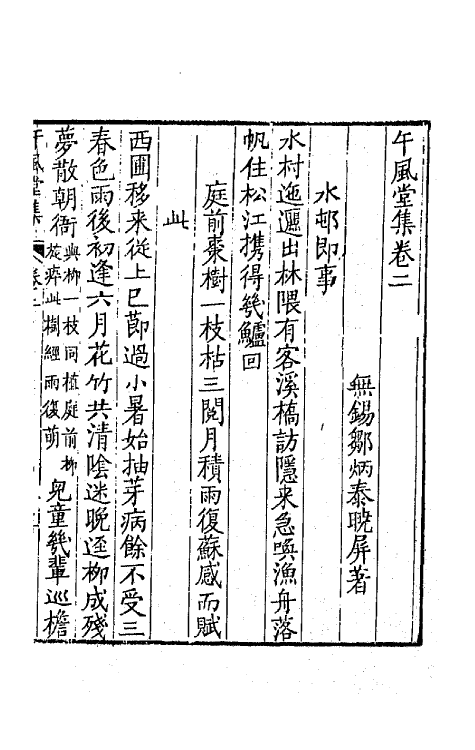 午風堂集卷二
無錫鄒炳泰曉屏著
水邨即事
水村迤邐出林隈有客溪橋訪隱來急喚漁舟落
帆住松江攜得幾鱸回
庭前棗樹一枝枯三閱月積雨復蘇感而賦
此
西圃移来從上巳節過小暑始抽芽病餘不受三
春色雨後初逢六月花竹共清陰迷晚逕柳成殘
夢散朝衙與柳一枝同植庭前柳旋瘁此樹經雨復萌兒童幾輩巡檐
午風堂集 卷二